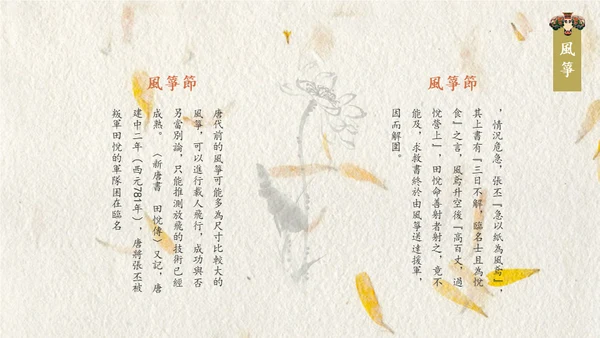 風箏
風箏節
唐代前的風箏可能多為尺寸比較大的
風箏，可以進行載人飛行，成功與否
另當別論，只能推測放飛的技術已經
成熟。（新唐書　田悅傳）又記，唐
建中二年（西元781年），唐將張丕被
叛軍田悅的軍隊困在臨名
風箏節
，情況危急，張丕「急以紙為風鳶」，
其上書有「三日不解，臨名士且為悅
食」之言，風鳶升空後「高百丈，過
悅營上」，田悅命善射者射之，竟不
能及，求救書終於由風箏道達援軍，
因而解圍。